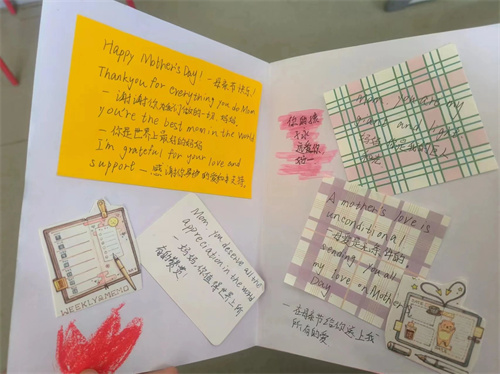 Happy Mother's Day! — 母亲节快乐!
Thankyou for everything you do Mom
— 谢谢你为我们做的一切, 妈妈
you're the best mom in the world
— 你是世界上最好的妈妈
I'm grateful for your love and
support — 感谢你
WEEKLY&MEMO
Mom you deserve all
appreciation in the world
— 妈妈, 你值得世界上所
有的赞赏!
你的孩
永
远爱你,
Mom, you are my
and Light
妈妈
A mother's love is
unconditional
— 母爱是无条件的,
Sending you all
my love on Mother
Day
— 在母亲节给你送上我
所有的爱